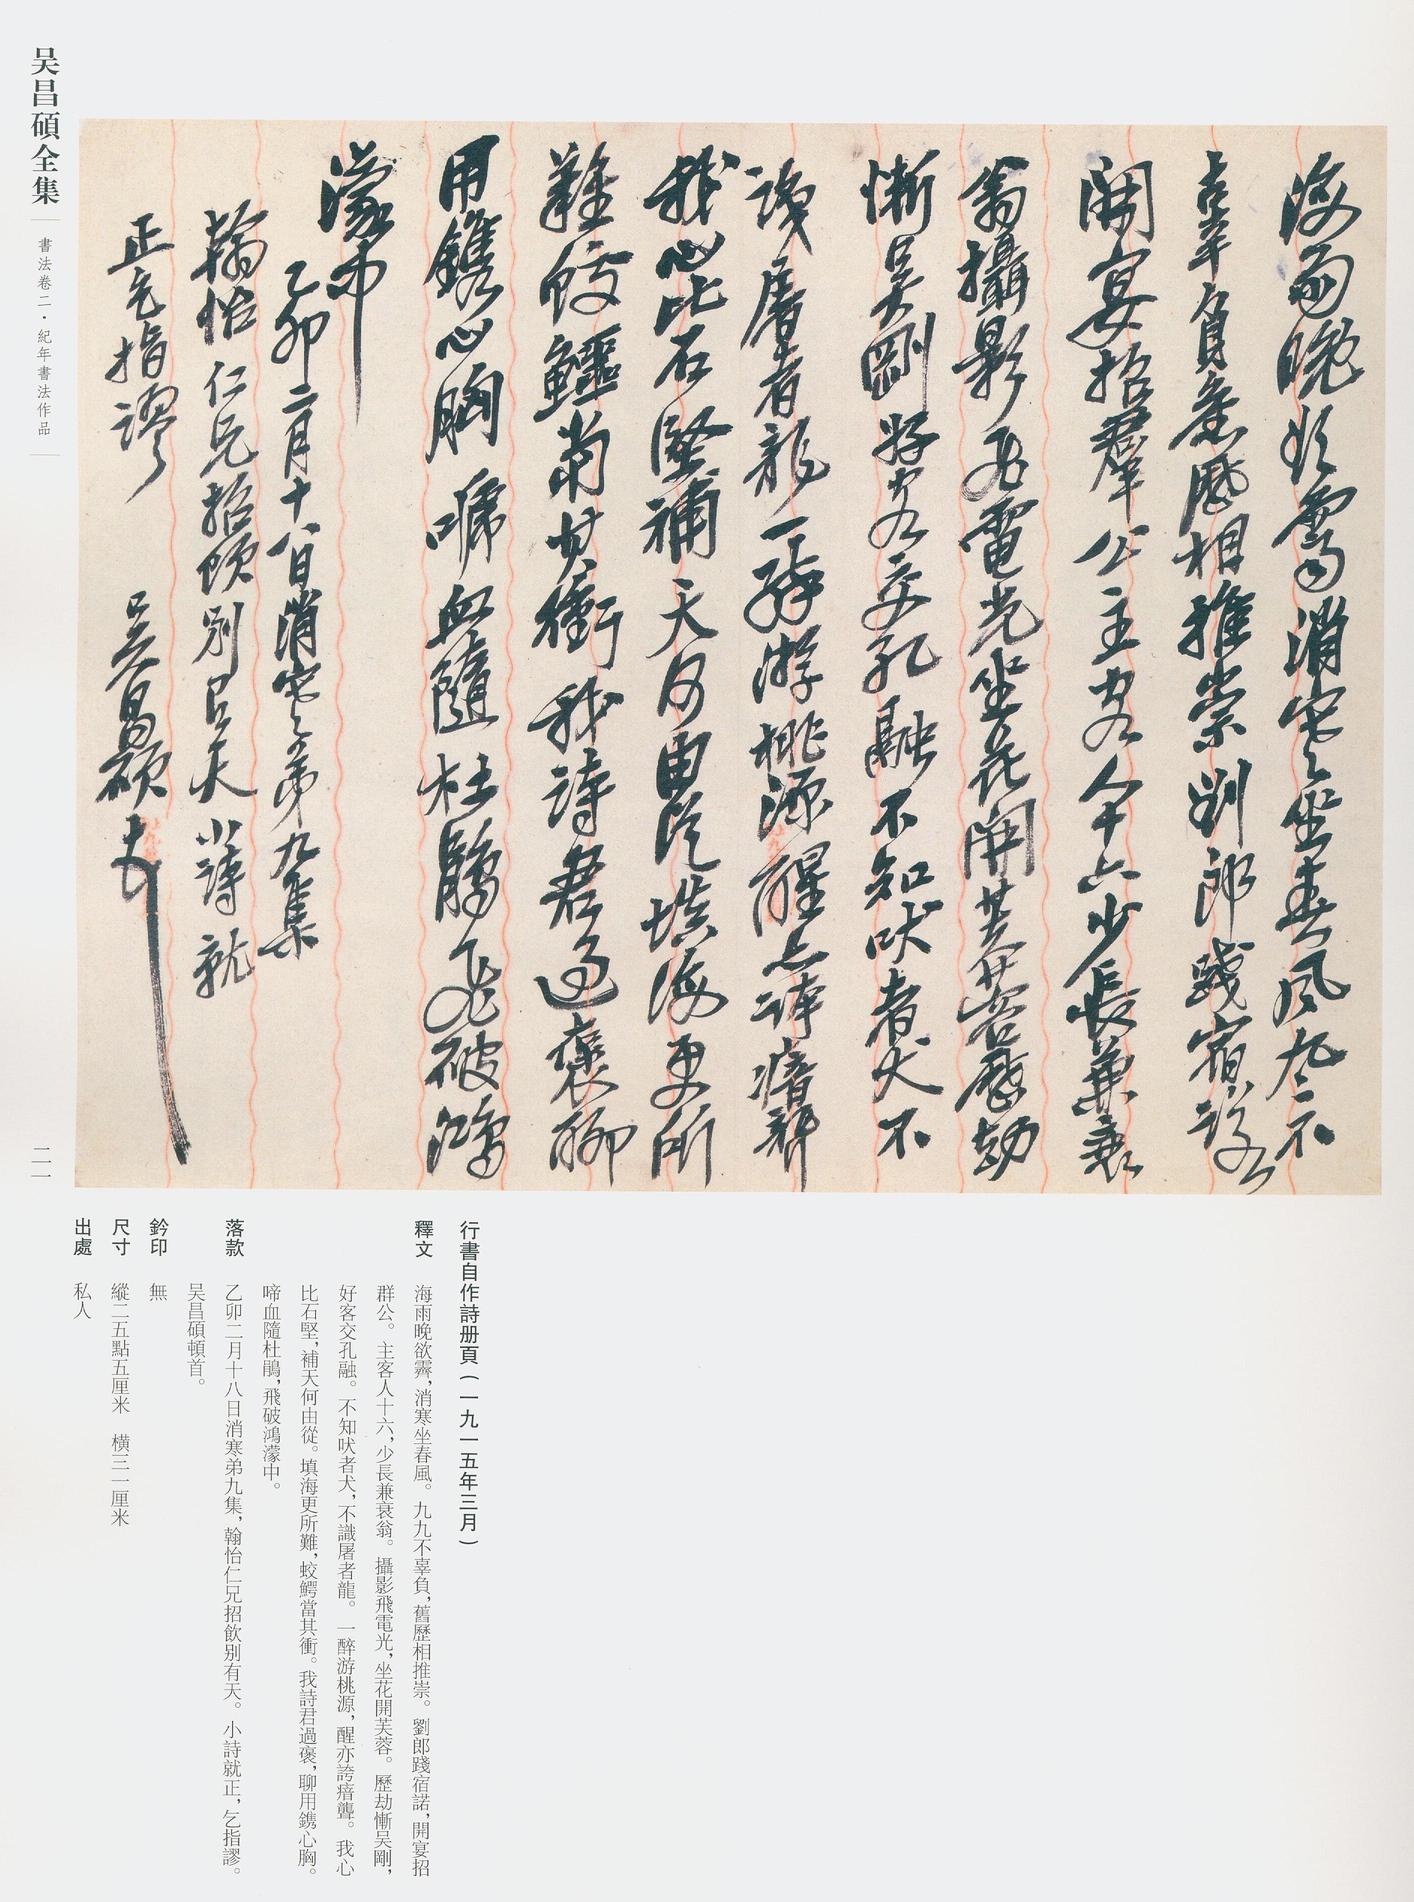 海雨晚欲霽消寒坐春風九九不
辜負舊歷相推崇劉郎踐宿諾
開宴招群公主客人十六少長兼衰
翁攝影飛電光坐花開芙蓉歷劫
慚吴剛好客交孔融不知吠者犬不
識屠者龍一醉游桃源醒亦誇瘖聾
我心比石堅補天何由從填海更所
難蛟鱷當其衝我詩君過褒聊
用鐫心胸嗁血隨杜鵑飛破鴻
濛中
乙卯二月十八日消寒弟九集
翰怡仁兄招飲别有天小詩就
正乞指謬
吴昌碩
行書自作詩册頁(一九一五年三月)
釋文 海雨晚欲霽,消寒坐春風。九九不辜負,舊歷相推崇。劉郎踐宿諾,開宴招
群公。主客人十六,少長兼衰翁。攝影飛電光,坐花開芙蓉。歷劫慚吴剛,
好客交孔融。不知吠者犬,不識屠者龍。一醉游桃源,醒亦誇瘖聾。我心
比石堅,補天何由從。填海更所難,蛟鱷當其衝。我詩君過褒,聊用鐫心胸。
啼血隨杜鵑,飛破鴻濛中。
落款 乙卯二月十八日消寒弟九集,翰怡仁兄招飲别有天。小詩就正,乞指謬。
吴昌碩頓首。
鈐印 無
尺寸 縱二五點五厘米 横三一厘米
出處 私人
吴昌碩全集
書法卷二·紀年書法作品
二一一